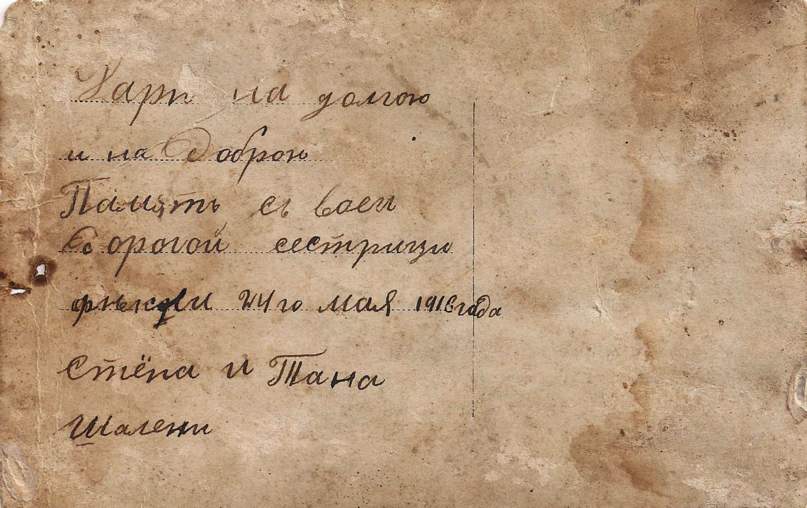 Дарю на долгою
и на доброю
Память съ воей
дорогой сестрици
24го мая 1916 года
Стёпа и Тана
Шалени